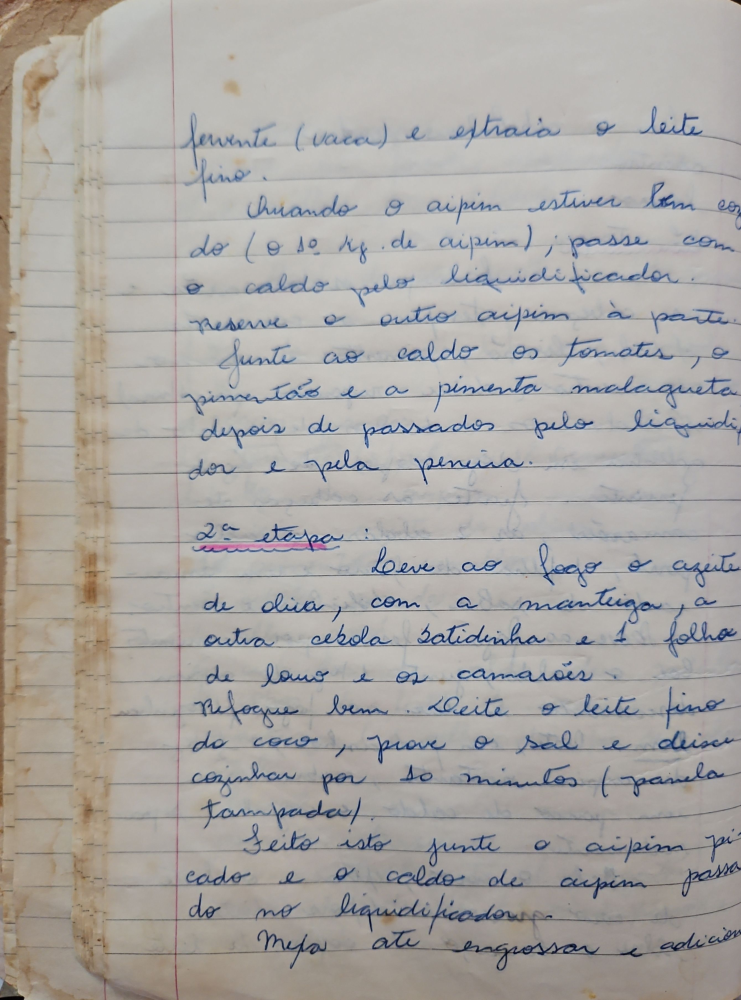 fervente (vaca) e extraia o leite
fino.
Quando o aipim estiver bem coz
do (o 1º kg. de aipim), passe com
o caldo pelo liquidificador.
Reserve o outro aipim à parte.
Junte ao caldo os tomates, o
pimentão e a pimenta malagueta
depois de passados pelo liquidi
dor e pela peneira.
2ª etapa:
Leve ao fogo o azeite
de oliva, com a manteiga, a
outra cebola batidinha e 1 folha
de louro e os camarões.
Refogue bem. Deite o leite fino
do coco, prove o sal e deixe
cozinhar por 10 minutos (panela
tampada).
Feito isto junte o aipim pi-
cado e o caldo de aipim passa
do no liquidificador.
Mexa ate engrossar e adicion